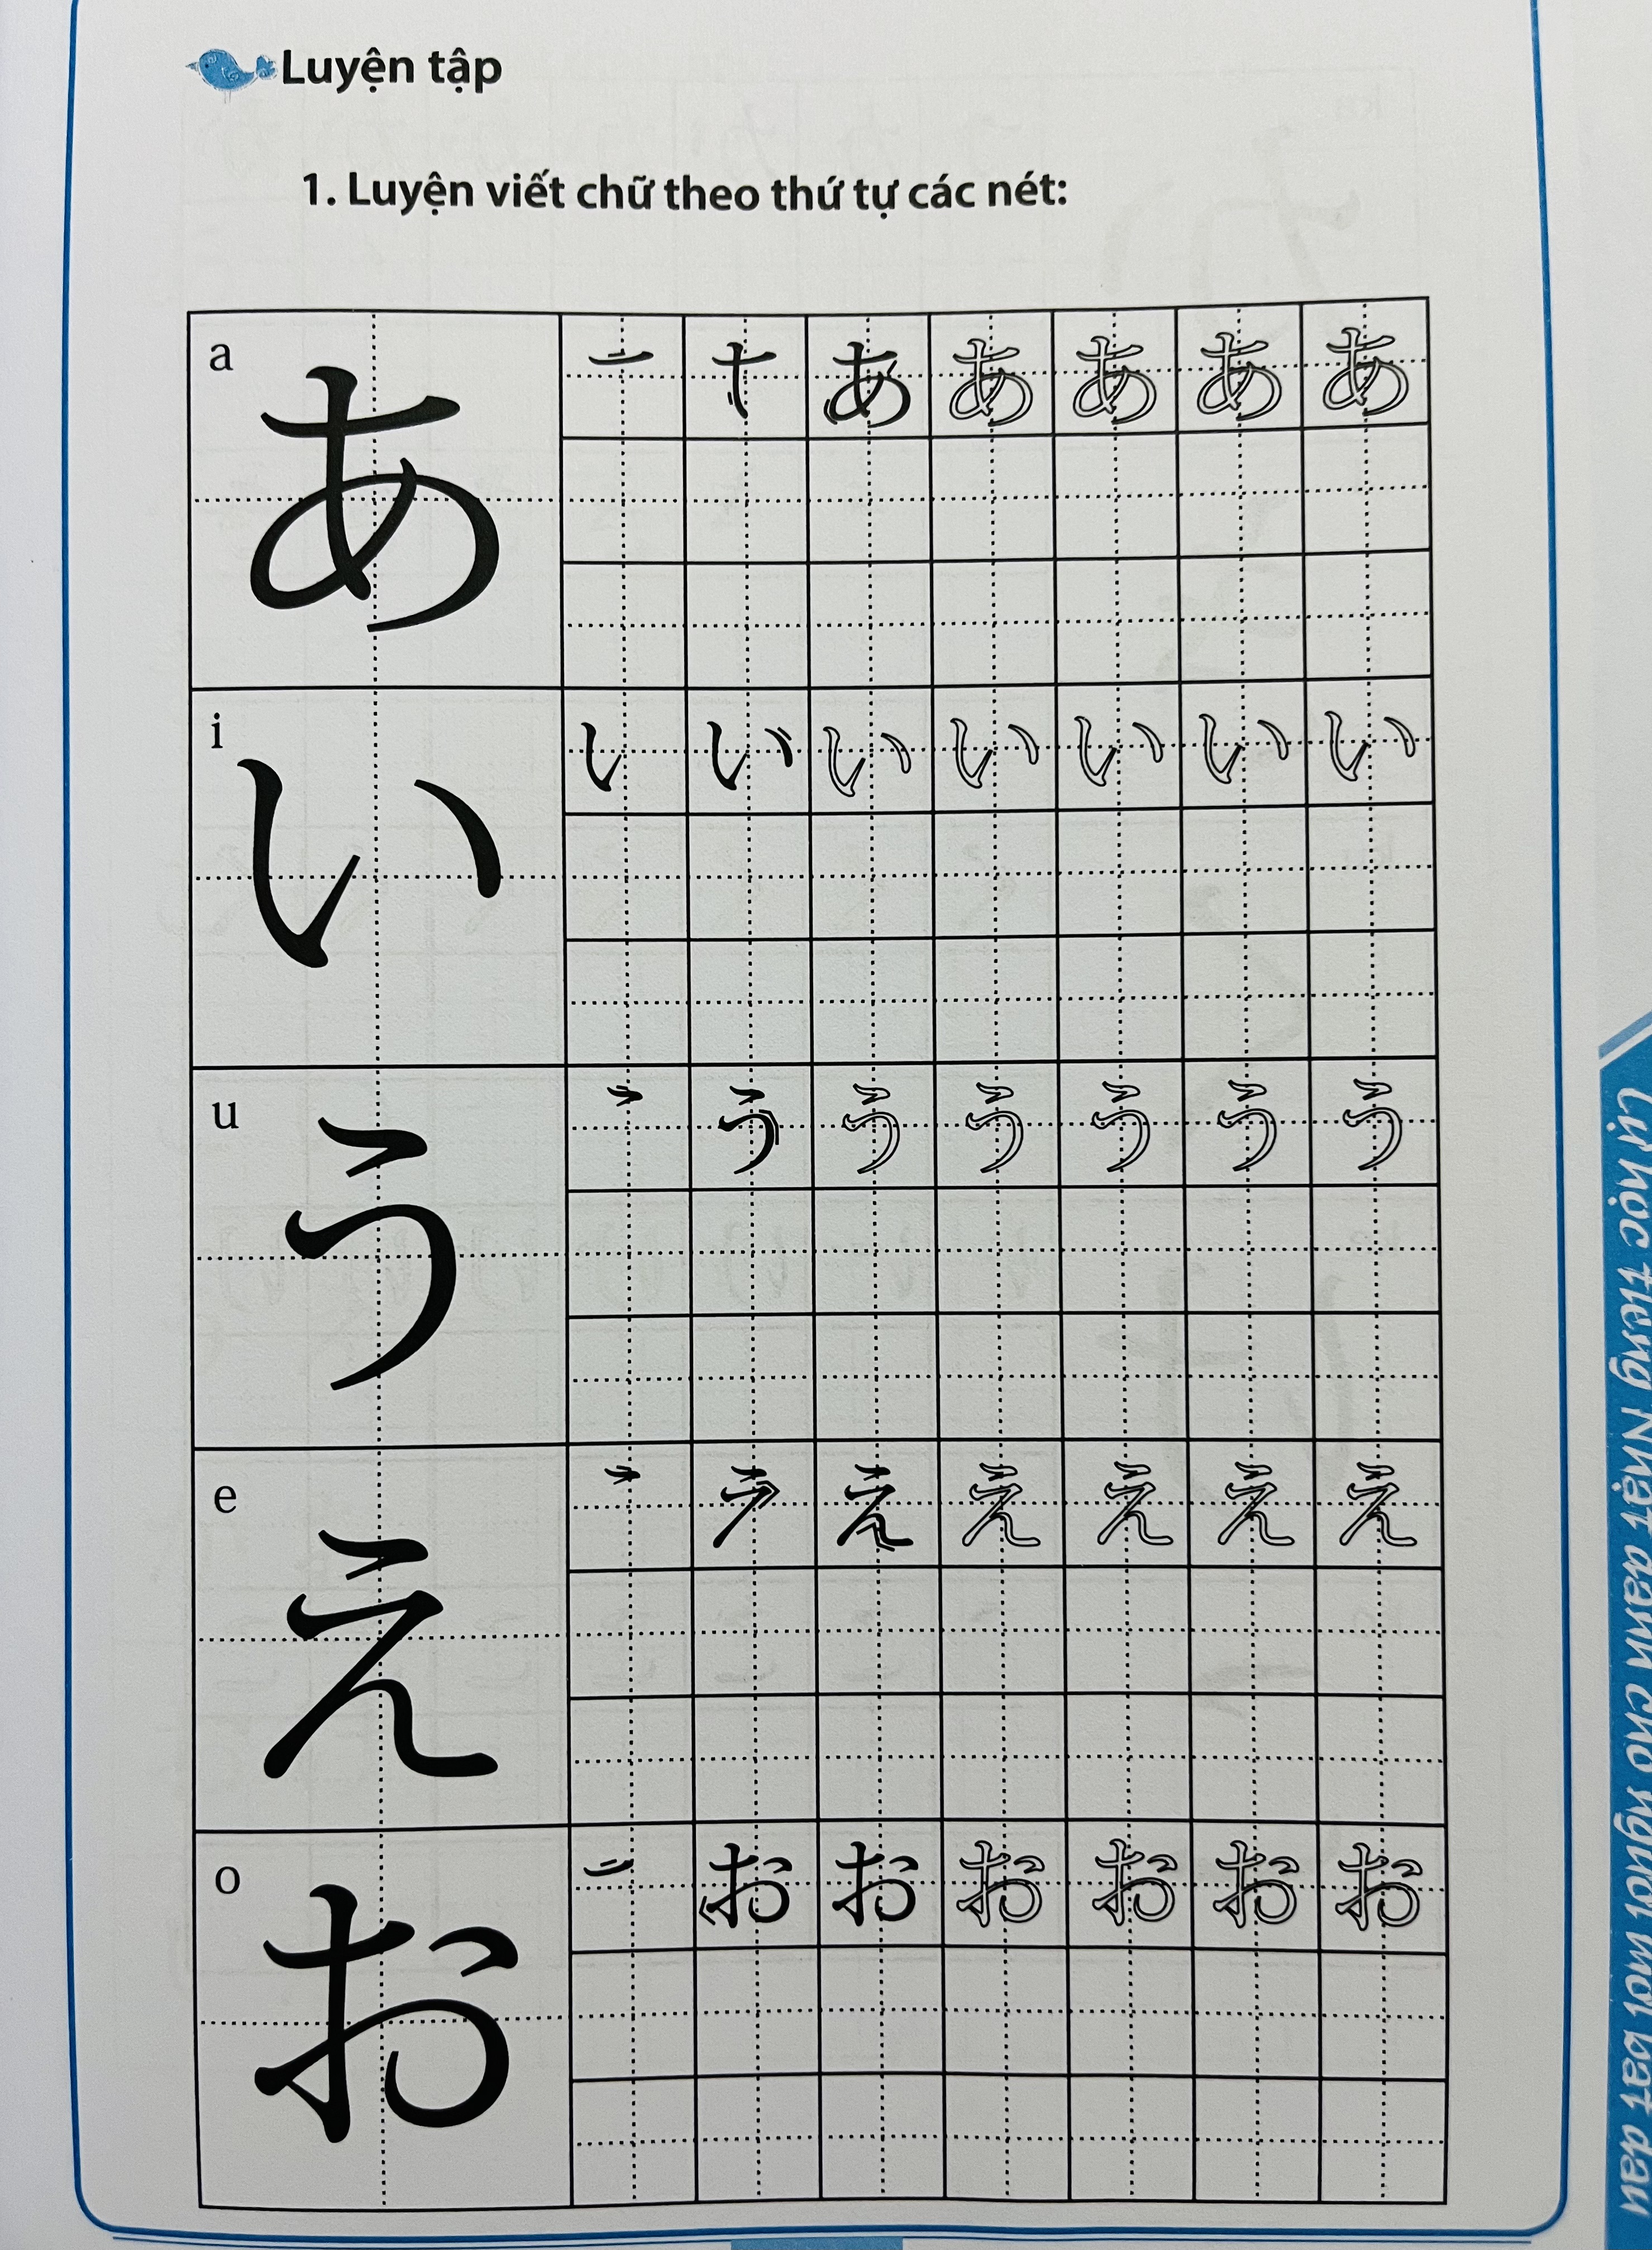 Luyện tập
1. Luyện viết chữ theo thứ tự các nét:
a
あ
あ あ あ あ あ
i
い
い い い い い い
u
う
う う う う う う
e
え
え え え え え
o
お
お お お お お お
Tự học tiếng Nhật dành cho người mới bắt đầu